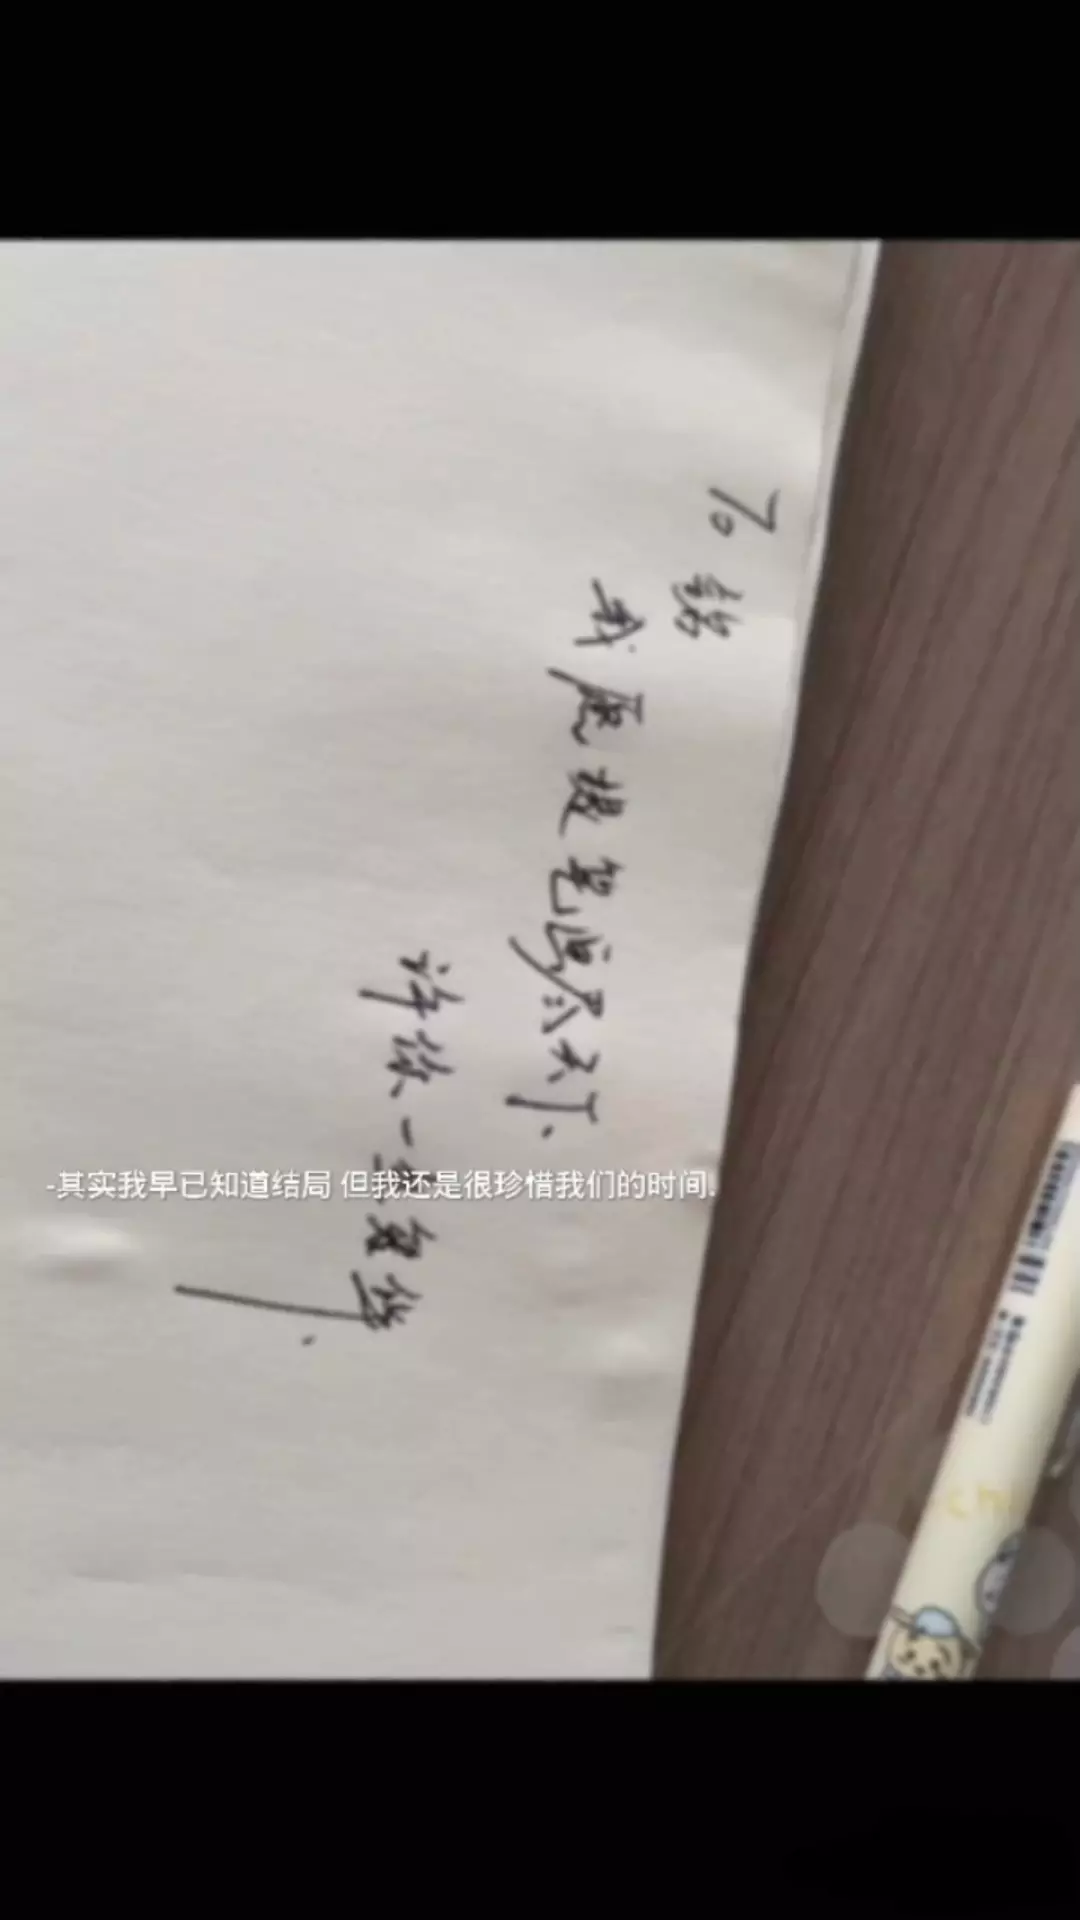 To 铭
我愿提笔画尽天下
许你一生繁华
-其实我早已知道结局 但我还是很珍惜我们的时间.